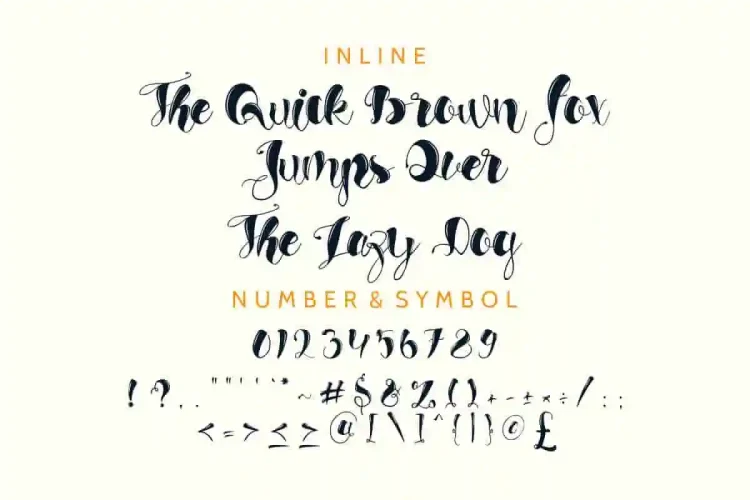 INLINE
The Quick Brown Fox
Jumps Over
The Lazy Dog
NUMBER & SYMBOL
0123456789
! ? . . " " ' ' ` * ~ # $ & % ( ) + - ± × ÷ / : ;
< = > ≤ ≥ @ [ \ ] ^ { | } © £